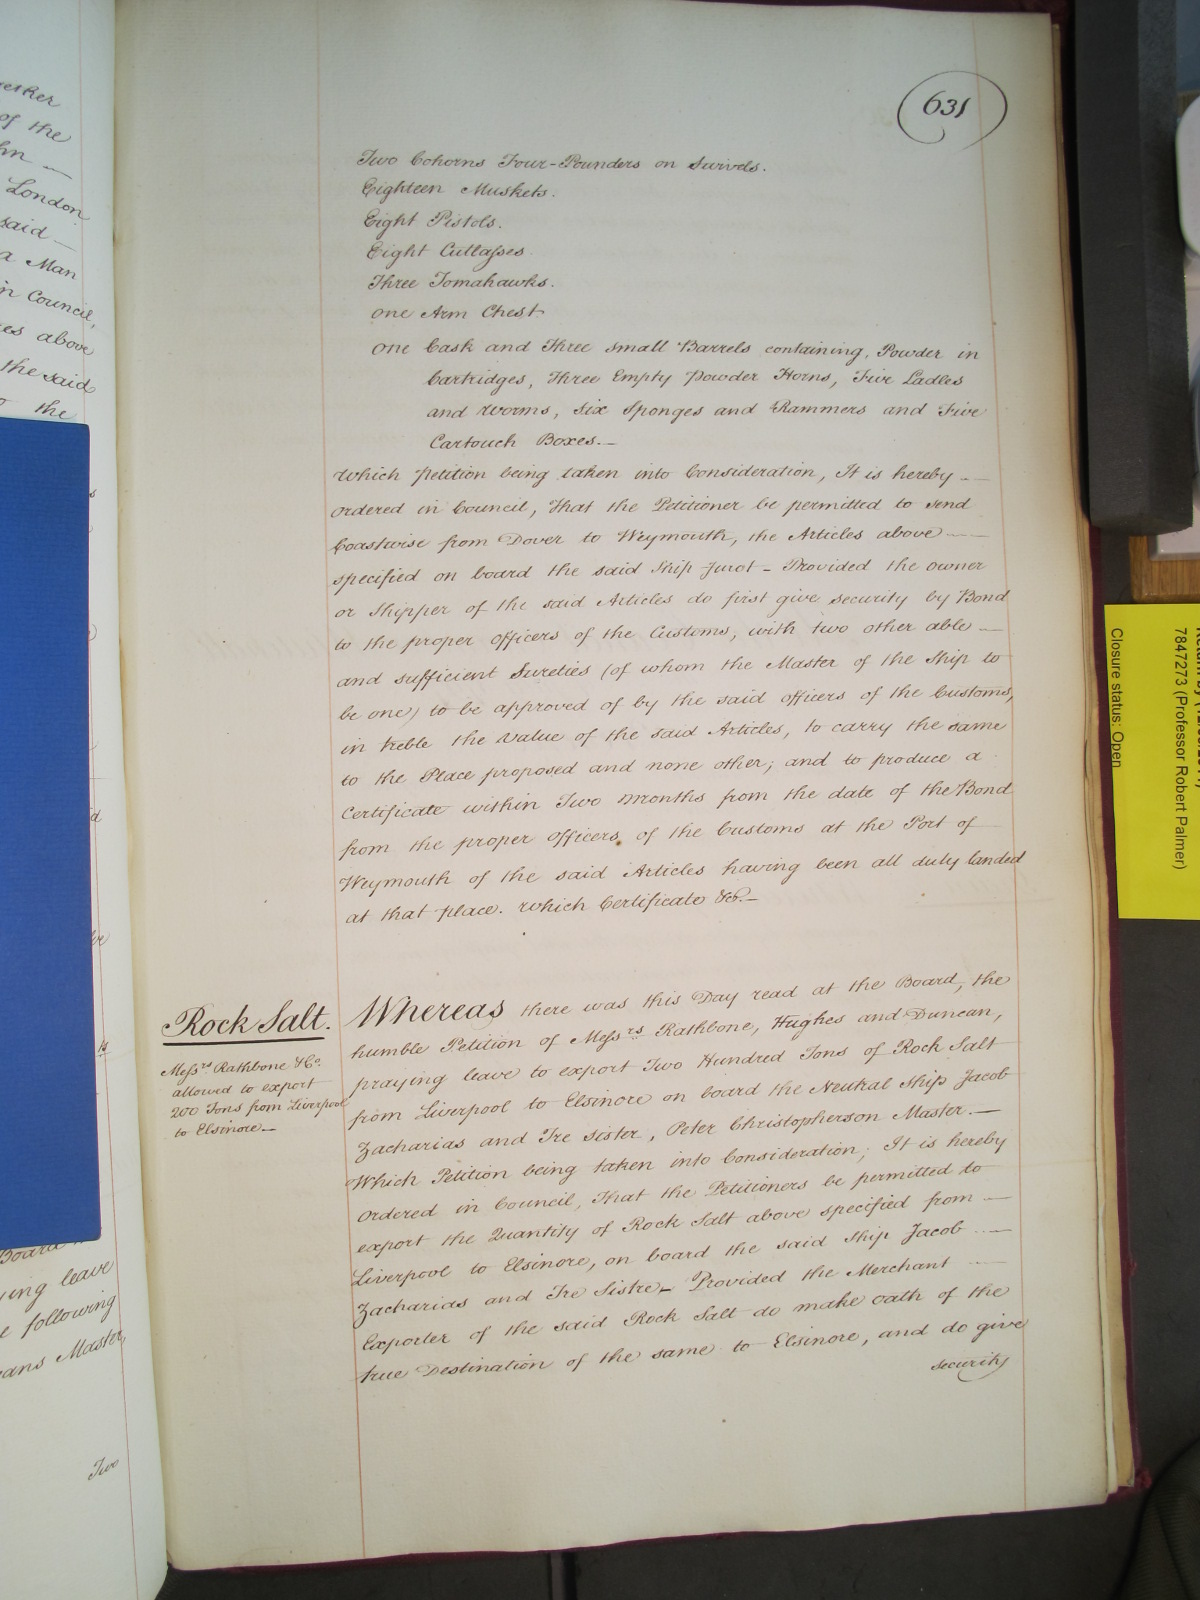 esker
of the
hn —
London
said —
a Man
in Council,
es above
the said
the
631
Two Cohorns Four-Pounders on Swivels.
Eighteen Muskets.
Eight Pistols.
Eight Cutlasses.
Three Tomahawks.
one Arm Chest
one Cask and Three small Barrels containing, Powder in
Cartridges, Three Empty Powder Horns, Five Ladles
and worms, six Sponges and Rammers and Five
Cartouch Boxes.—
Which Petition being taken into Consideration, It is hereby —
ordered in Council, That the Petitioner be permitted to send
Coastwise from Dover to Weymouth, the Articles above —
specified on board the said Ship Jurot - Provided the owner
or Shipper of the said Articles do first give security by Bond
to the proper officers of the Customs, with two other able —
and sufficient Sureties (of whom the Master of the Ship to
be one) to be approved of by the said officers of the Customs,
in treble the value of the said Articles, to carry the same
to the Place proposed and none other; and to produce a
Certificate within Two Months from the date of the Bond
from the proper officers of the Customs at the Port of
Weymouth of the said Articles having been all duly landed
at that place. Which Certificate &c.—
Rock Salt.
Messrs Rathbone & Co.
allowed to export
200 Tons from Liverpool
to Elsinore—
Whereas there was this Day read at the Board, the
humble Petition of Messrs Rathbone, Hughes and Duncan,
praying leave to export Two Hundred Tons of Rock Salt
from Liverpool to Elsinore on board the Neutral Ship Jacob
Zacharias and Tre sister, Peter Christopherson Master.—
Which Petition being taken into Consideration; It is hereby
ordered in Council, That the Petitioners be permitted to
export the Quantity of Rock Salt above specified from —
Liverpool to Elsinore, on board the said Ship Jacob —
Zacharias and Tre Sistre- Provided the Merchant —
Exporter of the said Rock Salt do make oath of the
true Destination of the same to Elsinore, and do give
security
Board
ying leave
e following
ans Master
Two
7847273 (Professor Robert Palmer)
Closure status: Open